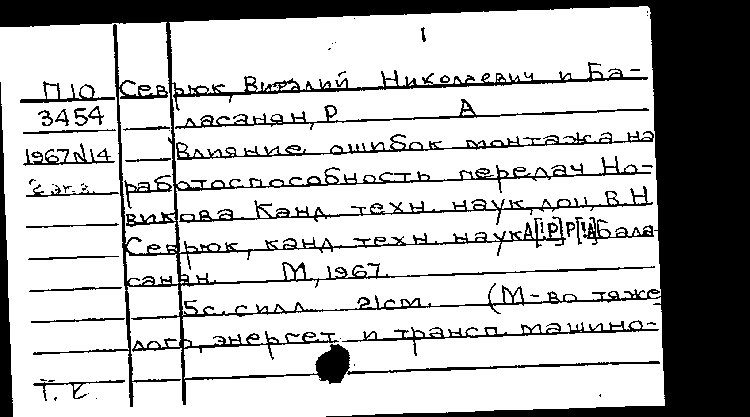 1
П10 Севрюк, Виталий Николаевич и Ба-
3454 ласанян, Р А
1967№14 Влияние ошибок монтажа на
2 эк.з. работоспособность передач Но-
викова. Канд. техн. наук, доц. В.Н.
Севрюк, канд. техн. наук А[!Р]Р[!А] Бала
санян. М, 1967.
5с. с илл. 21см. (М-во тяже
лого, энергет. и трансп. машино-
Т. К.